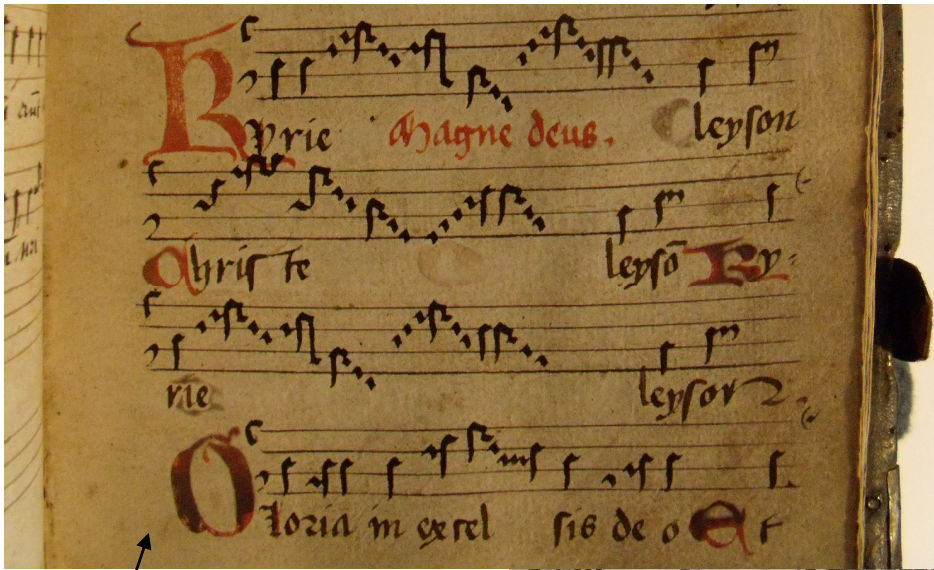 Kyrie Magne deus. leyson
Christe leysō Ky-
rie leyson
Gloria in excelsis deo Et